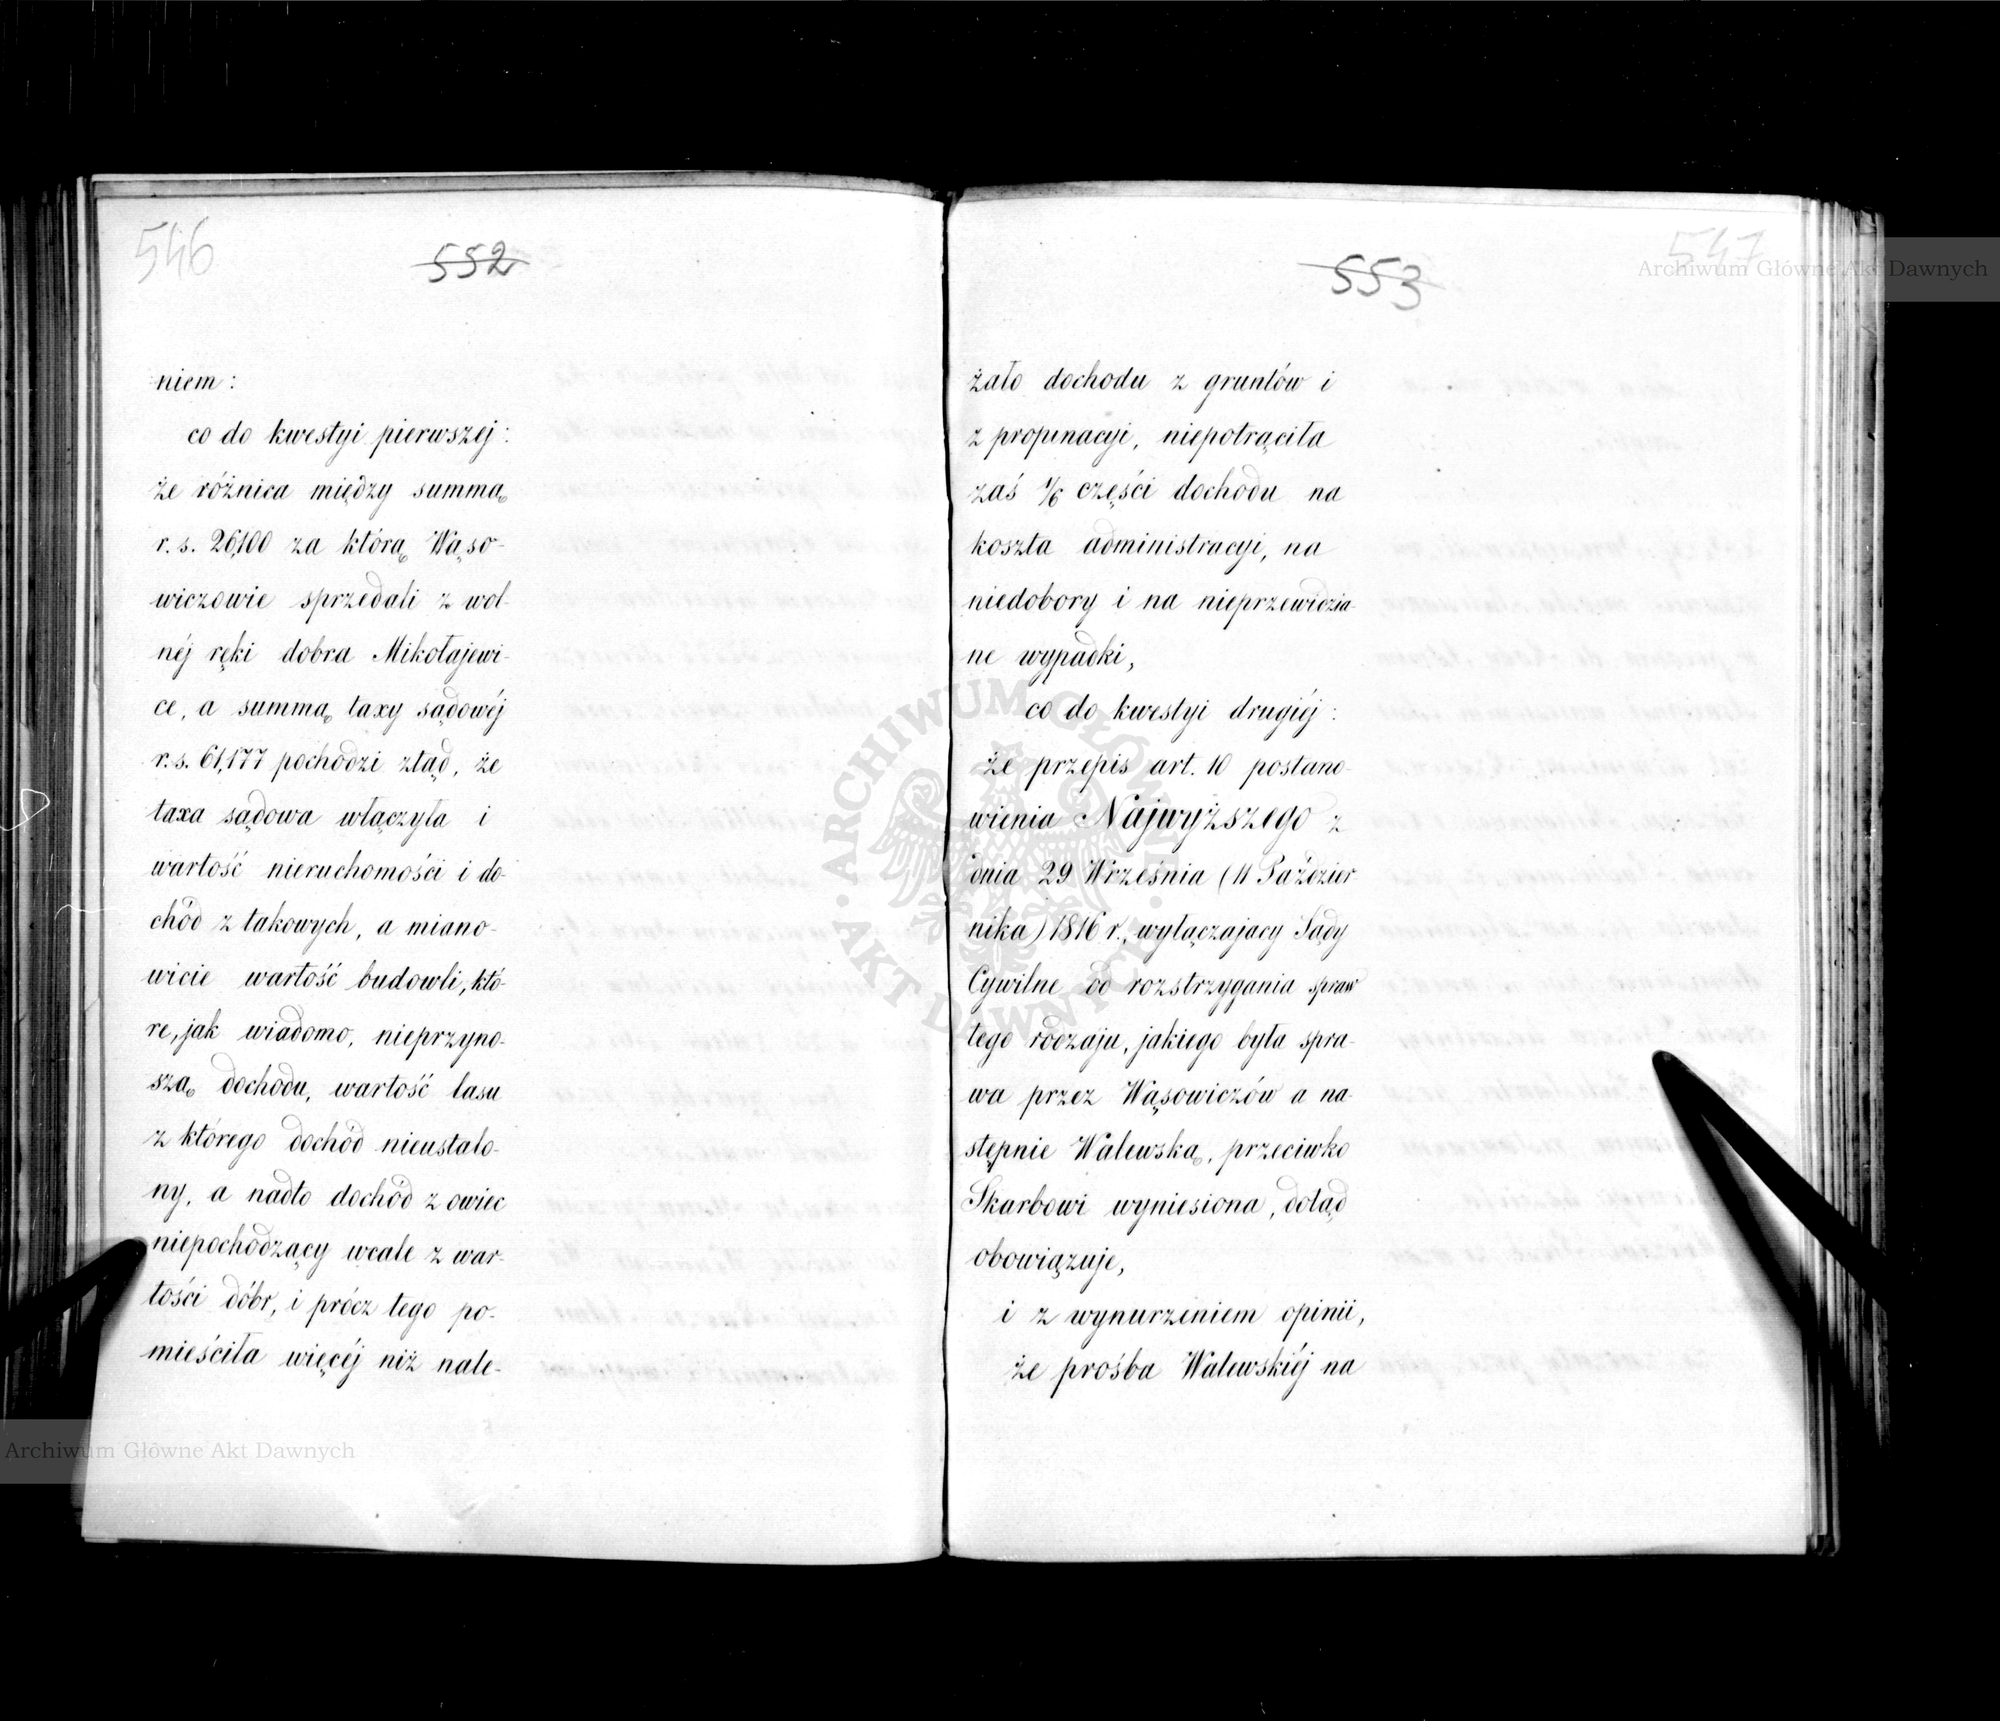 546
552
niem:
co do kwestyi pierwszej:
że różnica między summą
r. s. 26,100 za którą Wąso-
wiczowie sprzedali z wol-
néj ręki dobra Mikołajewi-
ce, a summą taxy sądowéj
r. s. 61,177 pochodzi ztąd, że
taxa sądowa włączyła i
wartość nieruchomości i do-
chód z takowych, a miano-
wicie wartość budowli, któ-
re, jak wiadomo, nieprzyno-
szą dochodu, wartość lasu
z którego dochód nieustalo-
ny, a nadto dochód z owiec
niepochodzący wcale z war-
tości dóbr, i prócz tego po-
mieściła więcéj niż nale-
547
553
żało dochodu z gruntów i
z propinacyi, niepotrąciła
zaś 1/6 części dochodu na
koszta administracyi, na
niedobory i na nieprzewidzia-
ne wypadki,
co do kwestyi drugiéj:
że przepis art. 10 postano-
wienia Najwyższego z
dnia 29 Września (11 Paździer
nika) 1816 r., wyłączający Sądy
Cywilne od rozstrzygania spraw
tego rodzaju, jakiego była spra-
wa przez Wąsowiczów a na-
stępnie Walewską, przeciwko
Skarbowi wyniesiona, dotąd
obowiązuje,
i z wynurzeniem opinii,
że prośba Walewskiéj na
Archiwum Główne Akt Dawnych
ARCHIWUM GŁÓWNE · AKT DAWNYCH ·
Archiwum Główne Akt Dawnych